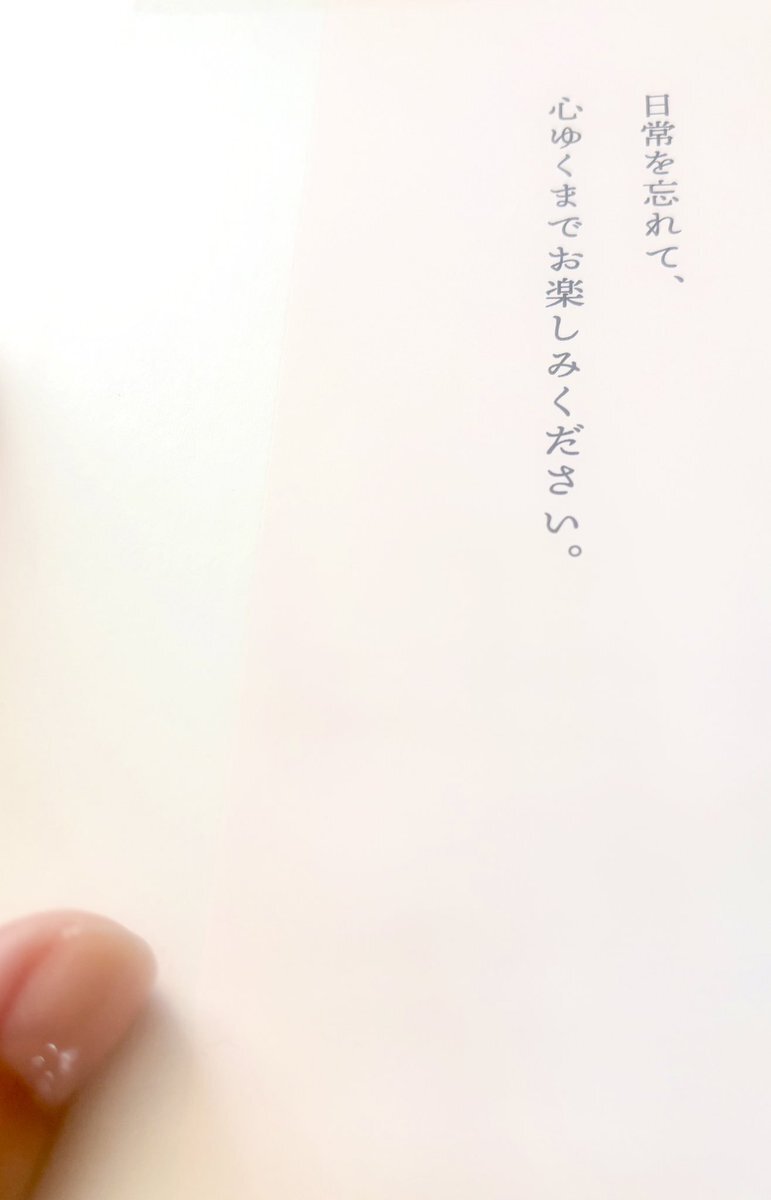 日常を忘れて、
心ゆくまでお楽しみください。